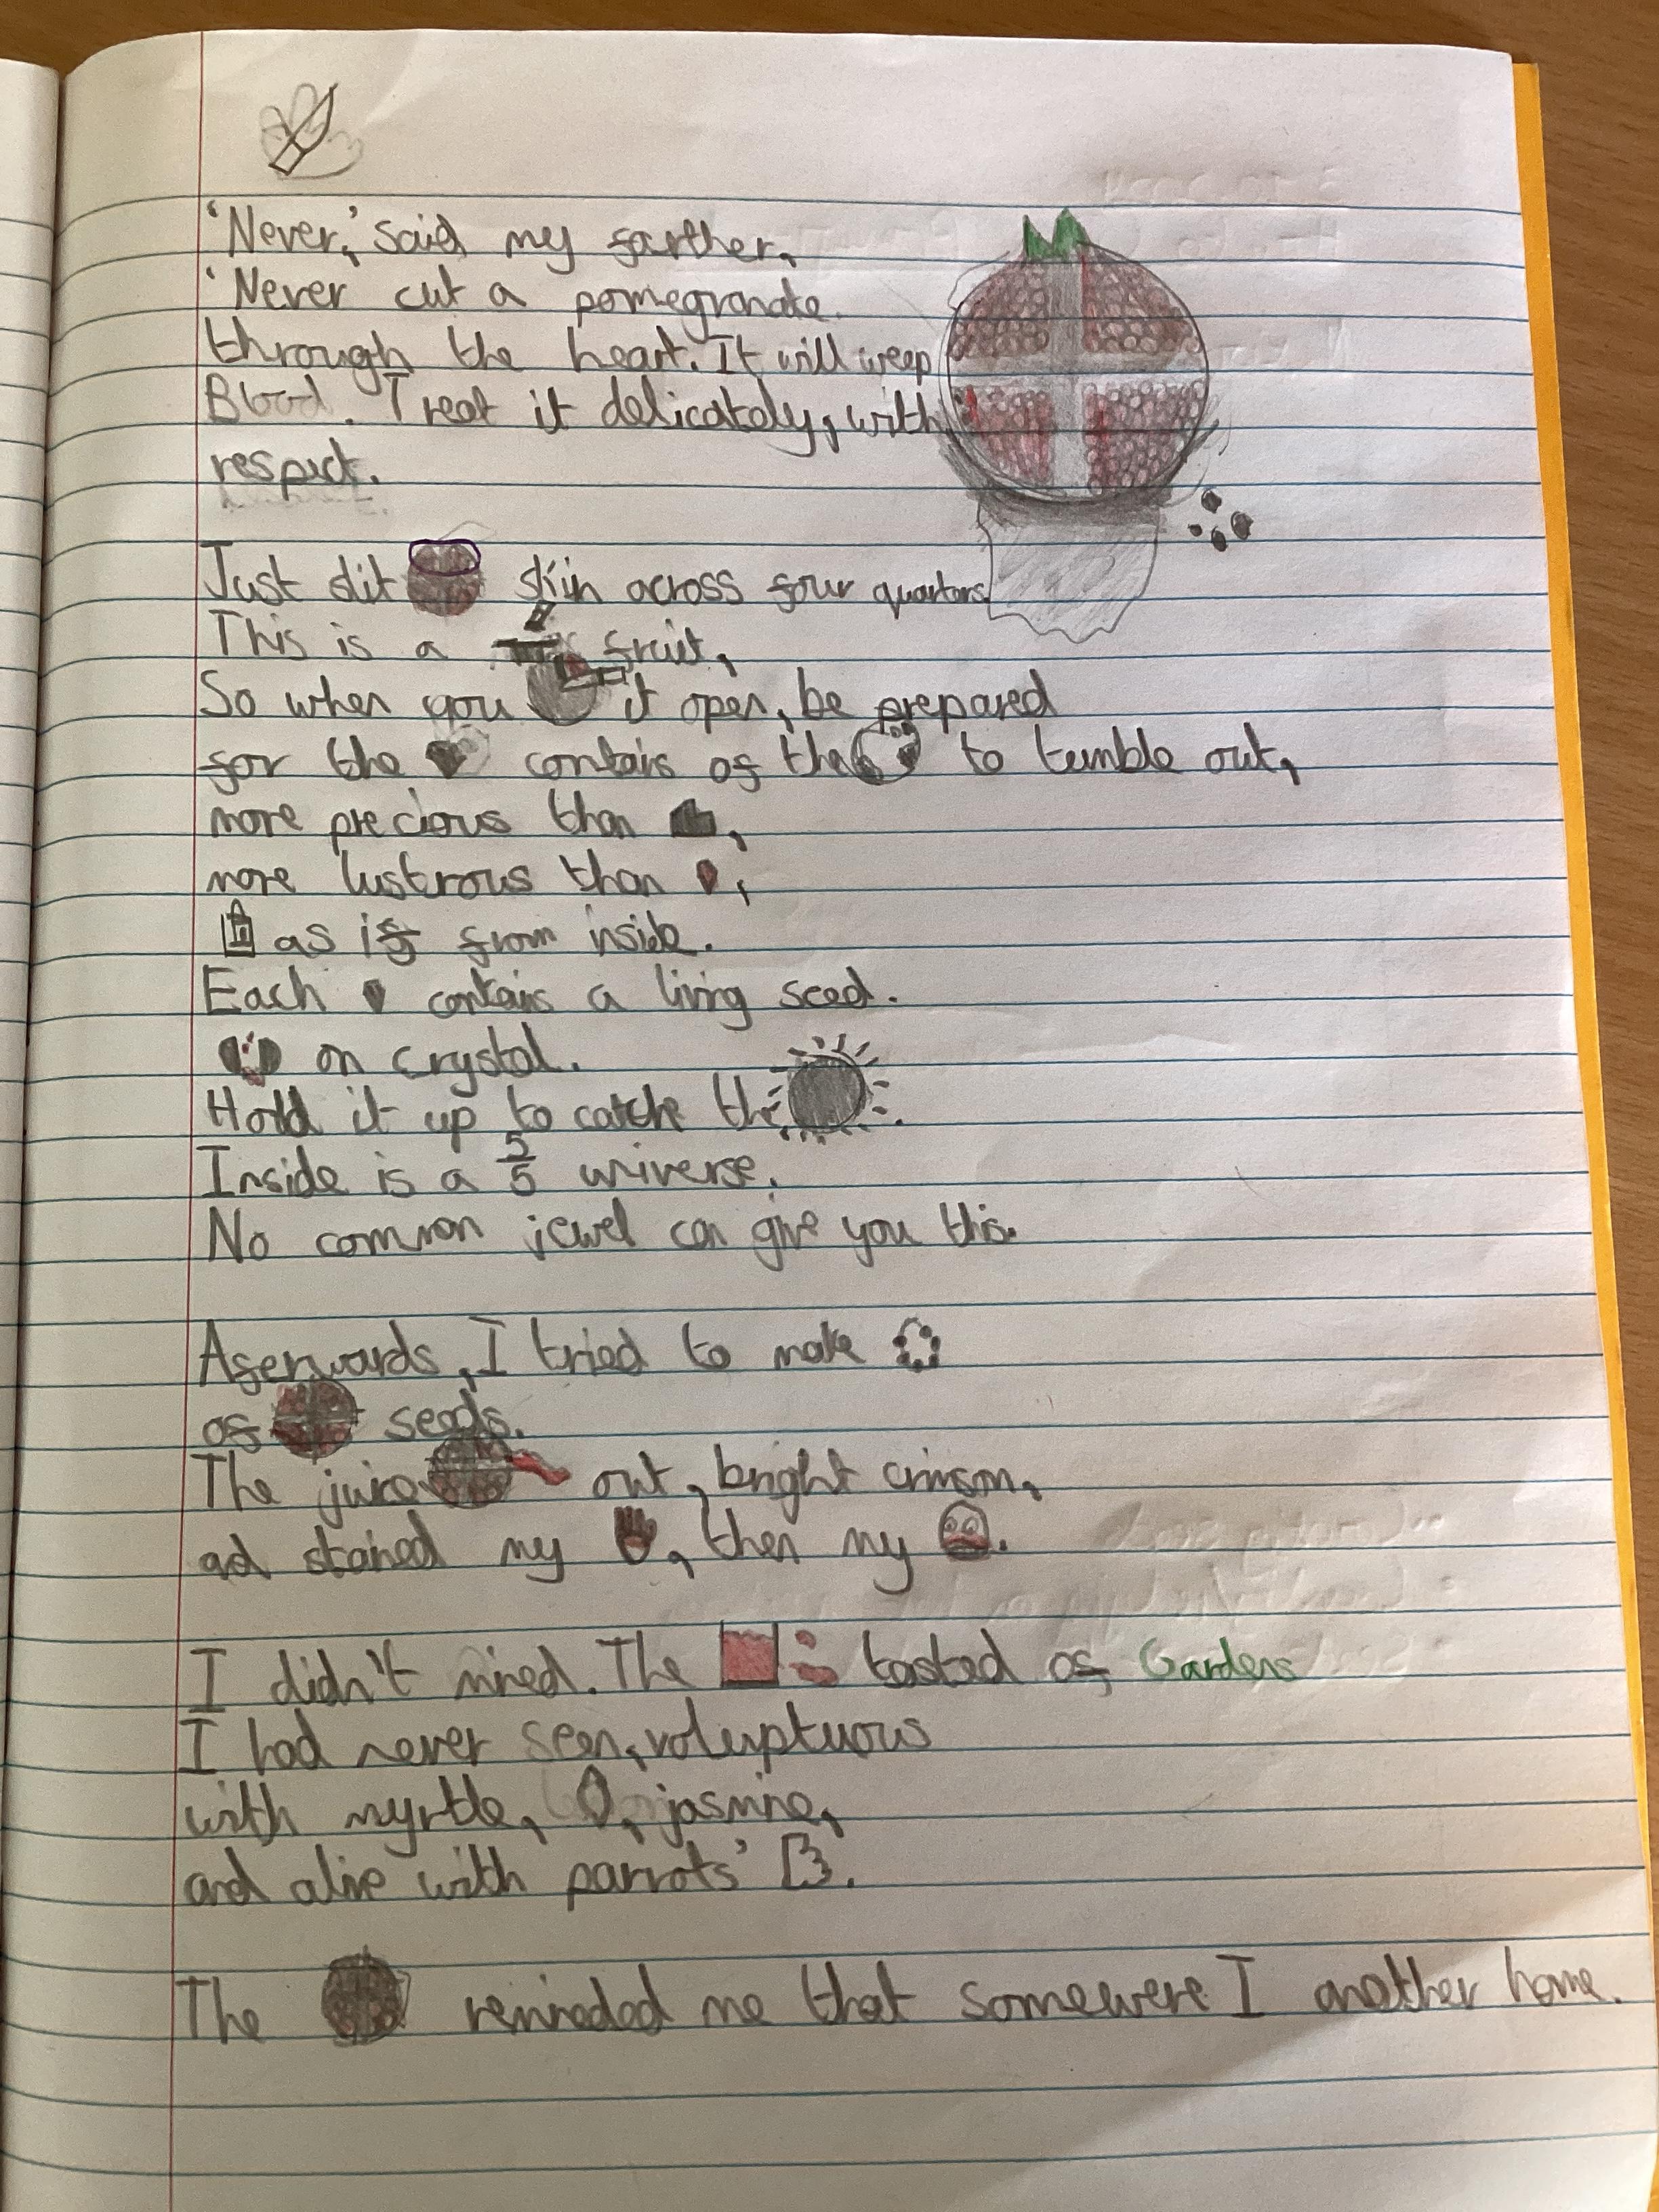 'Never,' said my farther,
'Never cut a pomegranate
through the heart. It will weep
Blood. Treat it delicately, with
respect.
Just slit skin across four quarters.
This is a fruit,
So when you it open, be prepared
for the contais of the to tumble out,
more precious than ,
more lustrous than ,
as if from inside.
Each contais a living seed.
on crystal.
Hold it up to catche the .
Inside is a 5/5 universe.
No common jewel can give you this.
Aferwards, I tried to make
of seeds.
The juice out, bright crimson,
ad stained my , then my .
I didn't mined. The tasted of Gardens
I had never seen, voluptuous
with myrtle, , jasmine,
and alive with parrots' .
The reminded me that somewere I another home.